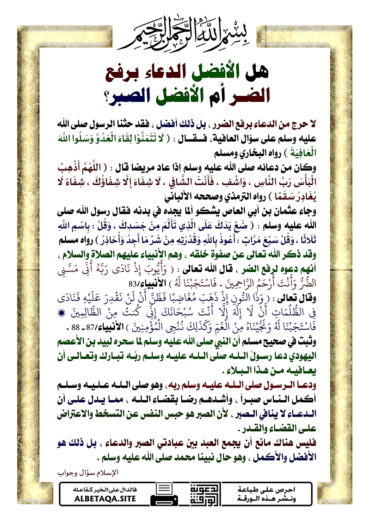 بسم الله الرحمن الرحيم
هل الأفضل الدعاء برفع
الضر أم الأفضل الصبر؟
لا حرج من الدعاء برفع الضرر ، بل ذلك أفضل ، فقد حثنا الرسول صلى الله
عليه وسلم على سؤال العافية. فـقـال : ( لَا تَتَمَنَّوْا لِقَاءَ الْعَدُوِّ وَسَلُوا اللَّهَ
الْعَافِيَةَ ) رواه البخاري ومسلم
وكان من دعائه صلى الله عليه وسلم إذا عاد مريضا قال : ( اللَّهُمَّ أَذْهِبْ
الْبَأْسَ رَبَّ النَّاسِ ، وَاشْفِ ، فَأَنْتَ الشَّافِي ، لَا شِفَاءَ إِلَّا شِفَاؤُكَ ، شِفَاءً لَا
يُغَادِرُ سَقَمًا ) رواه الترمذي وصححه الألباني
وجاء عثمان بن أبي العاص يشكو ألما يجده في بدنه فقال رسول الله صلى
الله عليه وسلم : ( ضَعْ يَدَكَ عَلَى الَّذِي تَأَلَّمَ مِنْ جَسَدِكَ ، وَقُلْ : بِاسْمِ اللَّهِ
ثَلَاثًا ، وَقُلْ سَبْعَ مَرَّاتٍ : أَعُوذُ بِاللَّهِ وَقُدْرَتِهِ مِنْ شَرِّ مَا أَجِدُ وَأُحَاذِرُ ) رواه مسلم
وقد ذكر الله تعالى عن صفوة خلقه ، وهم الأنبياء عليهم الصلاة والسلام ،
أنهم دعوه لرفع الضر . قال الله تعالى : ( وَأَيُّوبَ إِذْ نَادَى رَبَّهُ أَنِّي مَسَّنِيَ
الضُّرُّ وَأَنْتَ أَرْحَمُ الرَّاحِمِينَ . فَاسْتَجَبْنَا لَهُ ) الأنبياء/83
وقال تعالى : ( وَذَا النُّونِ إِذْ ذَهَبَ مُغَاضِبًا فَظَنَّ أَنْ لَنْ نَقْدِرَ عَلَيْهِ فَنَادَى
فِي الظُّلُمَاتِ أَنْ لَا إِلَهَ إِلَّا أَنْتَ سُبْحَانَكَ إِنِّي كُنْتُ مِنَ الظَّالِمِينَ
فَاسْتَجَبْنَا لَهُ وَنَجَّيْنَاهُ مِنَ الْغَمِّ وَكَذَلِكَ نُنْجِي الْمُؤْمِنِينَ ) الأنبياء/87 ـ 88 .
وثبت في صحيح مسلم أن النبي صلى الله عليه وسلم لما سحره لبيد بن الأعصم
اليهودي دعا رسول الله صلى الله عليه وسلم ربه تبارك وتعالى أن
يعافيه من هذا البلاء .
ودعا الرسول صلى الله عليه وسلم ربه، وهو صلى الله عليه وسلم
أكمل الناس صبراً ، وأشدهم رضا بقضاء الله ، مما يدل على أن
الدعاء لا ينافي الصبر ، لأن الصبر هو حبس النفس عن التسخط والاعتراض
على القضاء والقدر .
فليس هناك مانع أن يجمع العبد بين عبادتي الصبر والدعاء ، بل ذلك هو
الأفضل والأكمل ، وهو حال نبينا محمد صلى الله عليه وسلم .
الإسلام سؤال وجواب
احرص على طباعة
ونشر هذه الورقة
فالدال على الخير كفاعله
ALBETAQA.SITE